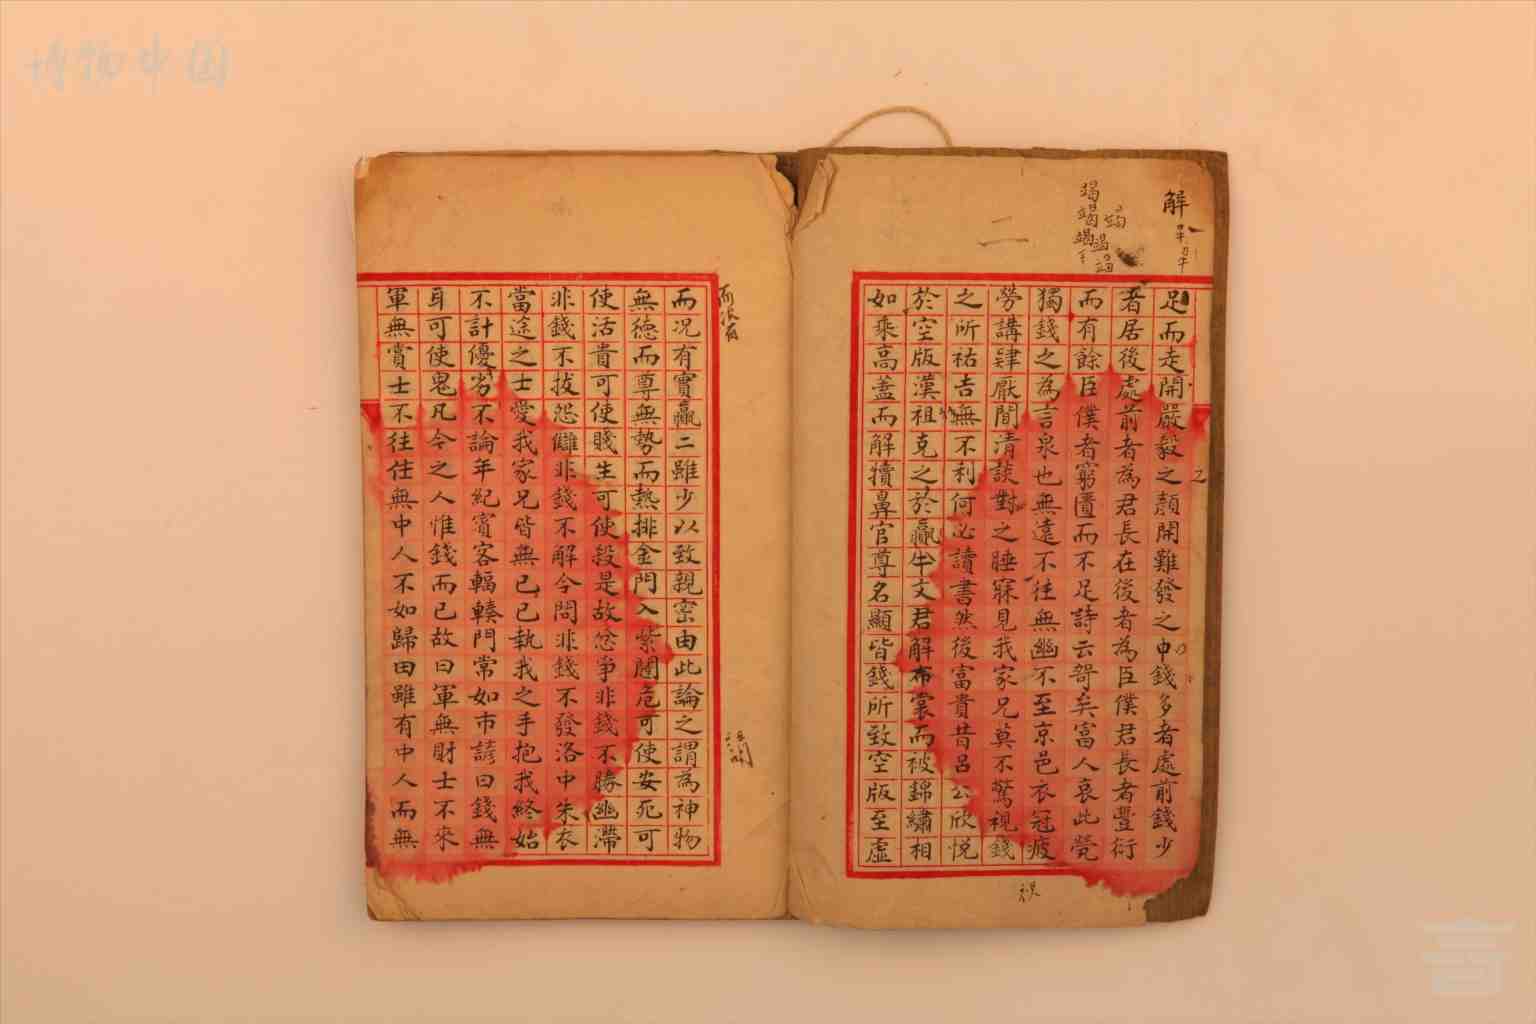 博物中国
解
二
竭
竭 竭
竭 竭
竭
足而走開嚴毅之顏開難發之申錢多者處前錢少
者居後處前者為君長在後者為臣僕君長者豐衍
而有餘臣僕者窮匱而不足詩云哿矣富人哀此煢
獨錢之為言泉也無遠不往無幽不至京邑衣冠疲
勞講肄厭聞清談對之睡寐見我家兄莫不驚視錢
之所祐吉無不利何必讀書然後富貴昔呂公欣悅
於空版漢祖克之於贏二文君解布裳而被錦繡相
如乘高蓋而解犢鼻官尊名顯皆錢所致空版至虛
之
祝
而況有實贏二雖少以致親密由此論之謂為神物
無德而尊無勢而熱排金門入紫闥危可使安死可
使活貴可使賤生可使殺是故忿爭非錢不勝幽滯
非錢不拔怨讎非錢不解令問非錢不發洛中朱衣
當途之士愛我家兄皆無已已執我之手抱我終始
不計優劣不論年紀賓客輻輳門常如市諺曰錢無
耳可使鬼凡今之人惟錢而已故曰軍無財士不來
軍無賞士不往仕無中人不如歸田雖有中人而無